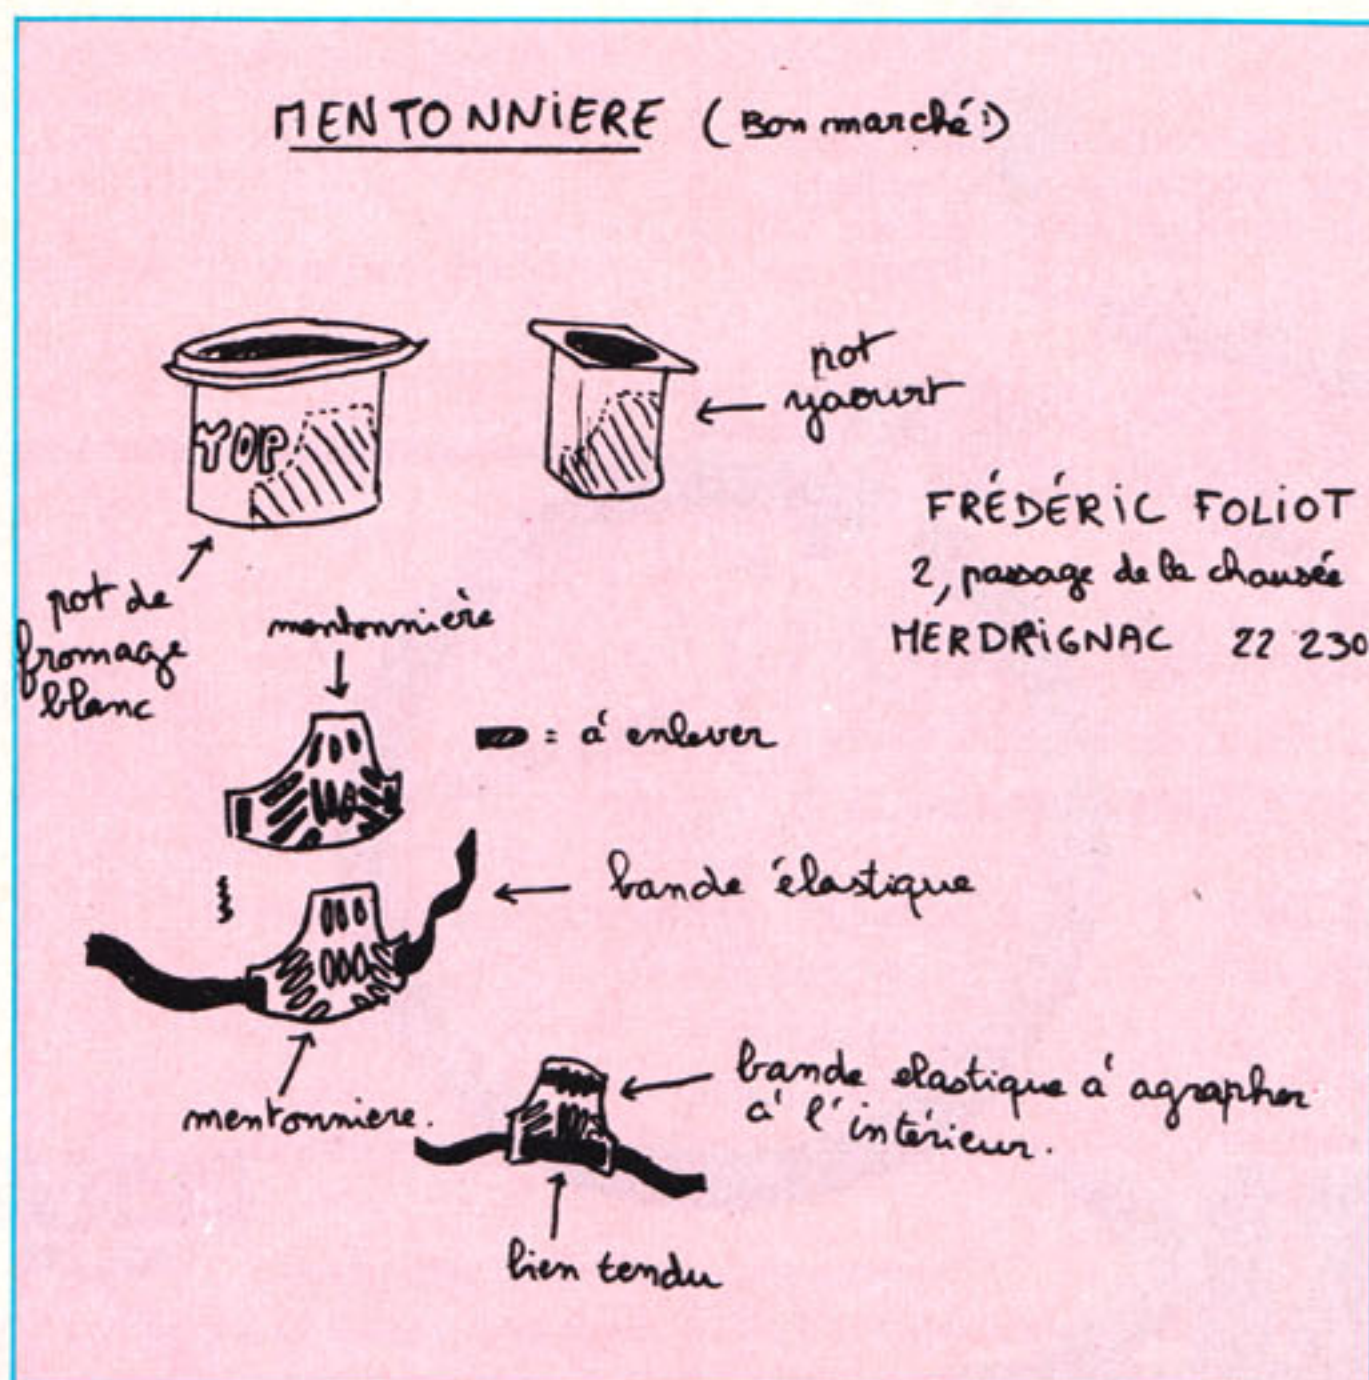 MENTONNIERE (Bon marché!)
YOP
pot
yaourt
FRÉDÉRIC FOLIOT
2, passage de la chausée
MERDRIGNAC 22 230
pot de
fromage
blanc
mentonnière
= à enlever
bande élastique
mentonniere.
bande elastique à agrapher
à l'intérieur.
bien tendu